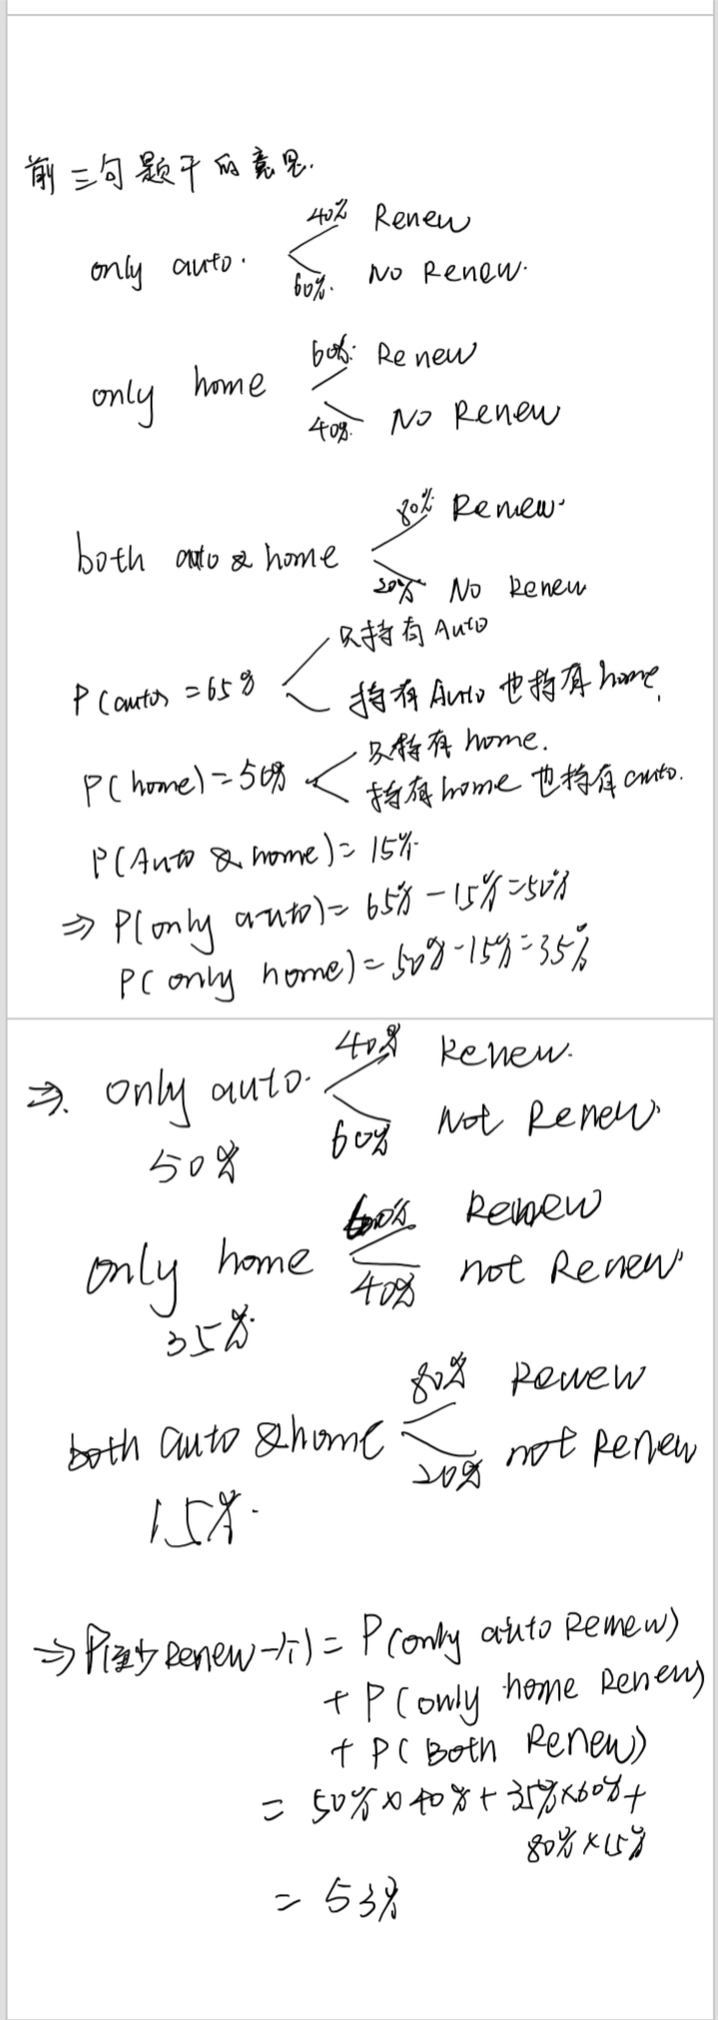 前三句题干的意思.
40% Renew
only auto.
60%. No Renew.
60%. Renew
only home
40%. No Renew
80% Renew.
both auto & home
20% No Renew
只持有 Auto
P(auto) = 65%
持有 Auto 也持有 home.
只持有 home.
P(home) = 50%
持有 home 也持有 auto.
P(Auto & home) = 15%
⇒ P(only auto) = 65% - 15% = 50%
P(only home) = 50% - 15% = 35%
40% Renew.
⇒. only auto.
60% Not Renew.
50%
60% Renew
only home
40% not Renew.
35%.
80% Renew
both auto & home
20% not Renew
15%.
⇒ P(至少 Renew 一个) = P(only auto Renew)
+ P(only home Renew)
+ P(Both Renew)
= 50% × 40% + 35% × 60% +
80% × 15%
= 53%